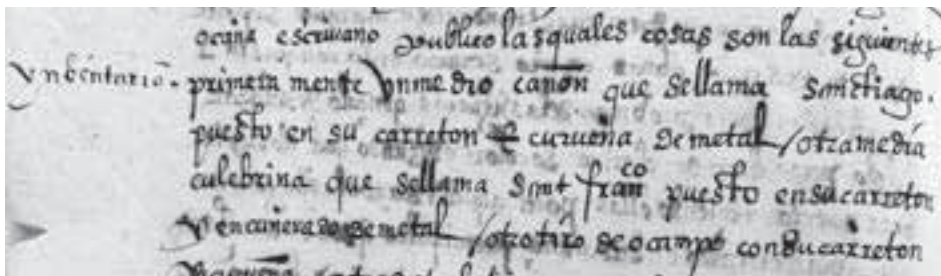 ocaña escriuano publico las quales cosas son las siguientes
ynbentario.
primera mente vn medio cañon que se llama Sanctiago.
puesto en su carreton e curueña de metal / otra media
culebrina que se llama Sant fran^co puesto en su carreton
y encureñado de metal / otro tiro de campo con su carreton